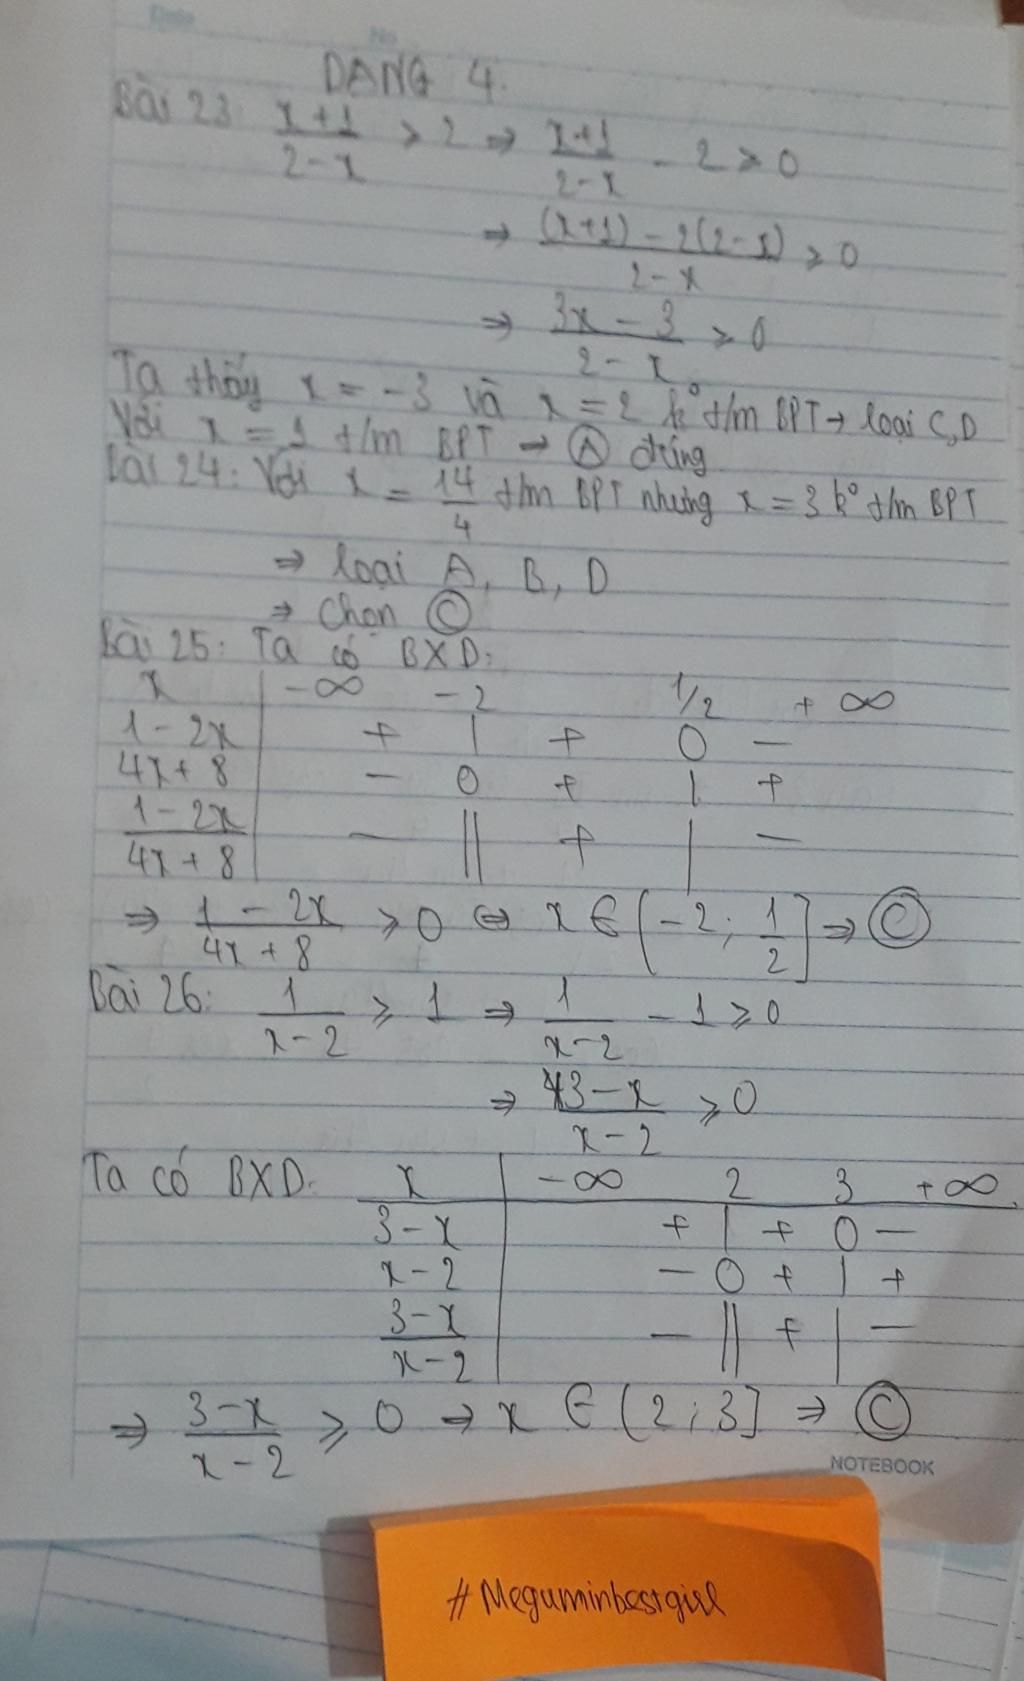 Date No
DẠNG 4.
Bài 23: x+1/2-x ≥ 2 ⇒ x+1/2-x - 2 ≥ 0
⇒ (x+1) - 2(2-x)/2-x ≥ 0
⇒ 3x - 3/2-x ≥ 0
Ta thấy x = -3 và x = 2 k° t/m BPT → loại C, D
Với x = 1 t/m BPT → Ⓐ đúng
Bài 24: Với x = 14/4 t/m BPT nhưng x = 3 k° t/m BPT
⇒ loại A, B, D
⇒ Chọn Ⓒ
Bài 25: Ta có BXD:
x | -∞ -2 1/2 +∞
1-2x | + | + 0 -
4x+8 | - 0 + | +
1-2x/4x+8 | - || + | -
⇒ 1-2x/4x+8 ≥ 0 ⇔ x ∈ (-2; 1/2] ⇒ Ⓒ
Bài 26: 1/x-2 ≥ 1 ⇒ 1/x-2 - 1 ≥ 0
⇒ 3-x/x-2 ≥ 0
Ta có BXD: x | -∞ 2 3 +∞
3-x | + | + 0 -
x-2 | - 0 + | +
3-x/x-2 | - || + | -
⇒ 3-x/x-2 ≥ 0 → x ∈ (2; 3] ⇒ Ⓒ
NOTEBOOK
#Meguminbestgirl